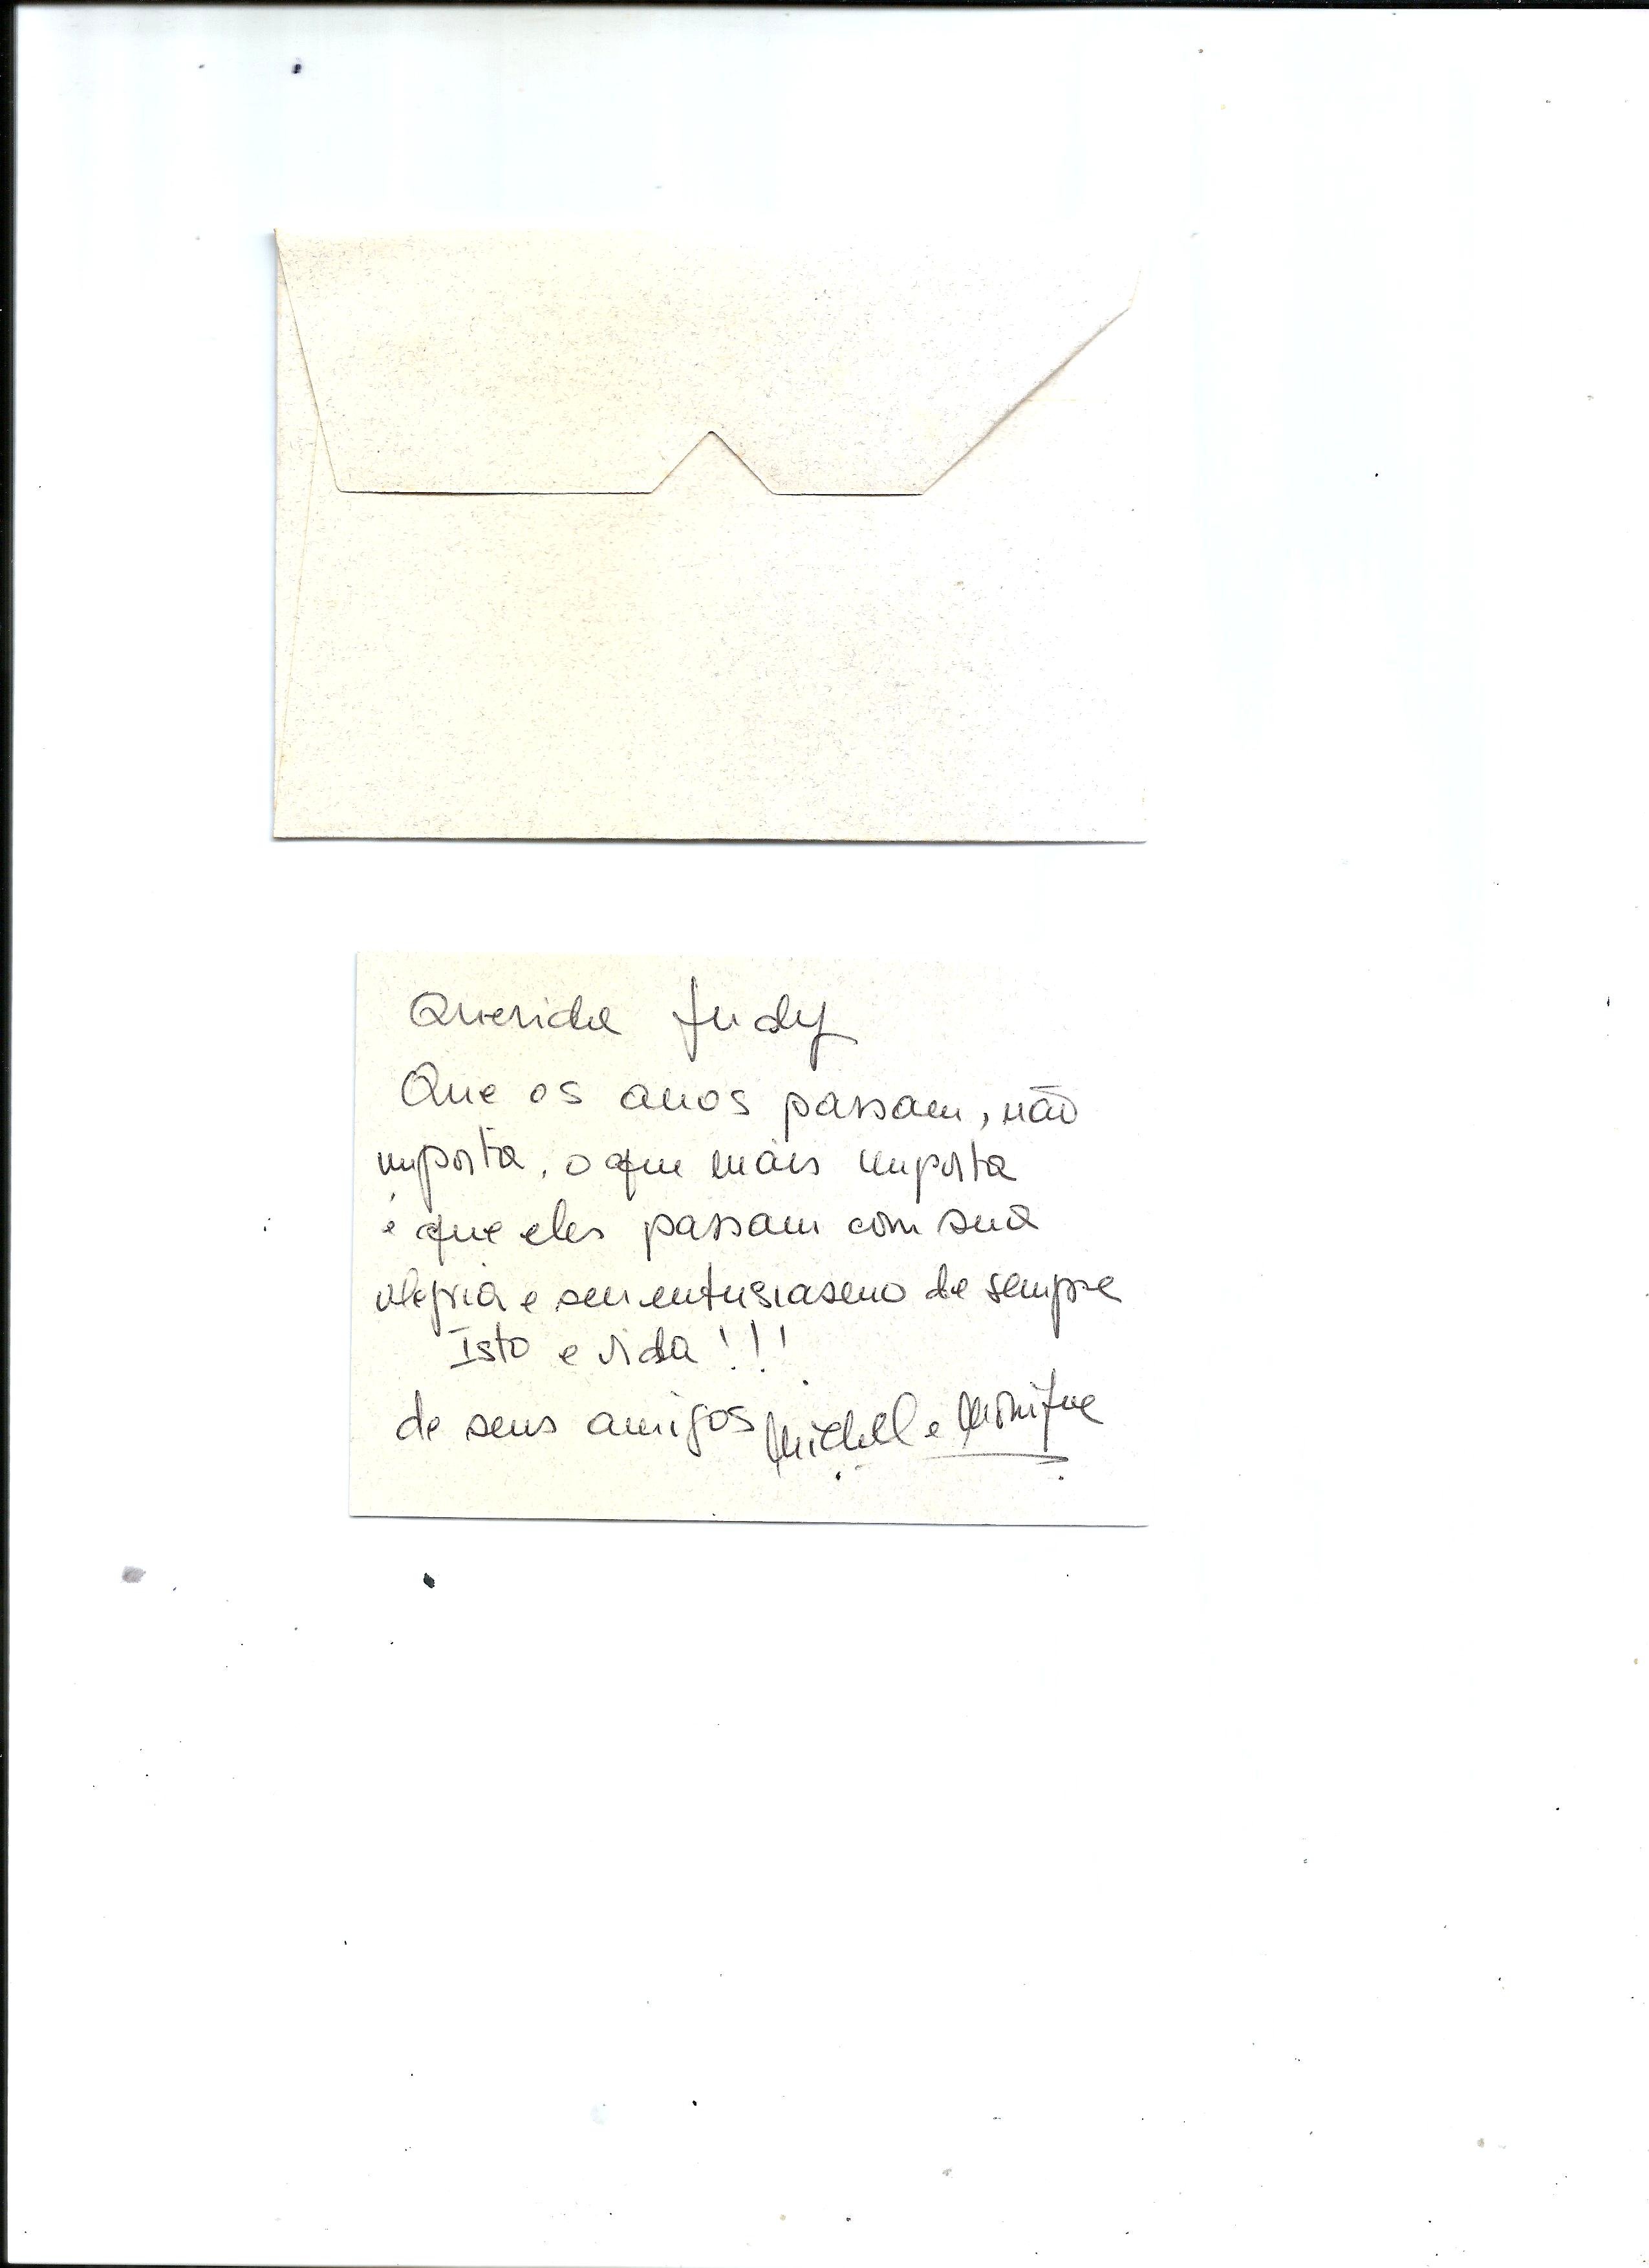 Querida Judy
Que os anos passam, não
importa, o que mais importa
é que eles passam com sua
alegria e seu entusiasmo de sempre
Isto e vida!!!
de seus amigos Michel e Monique